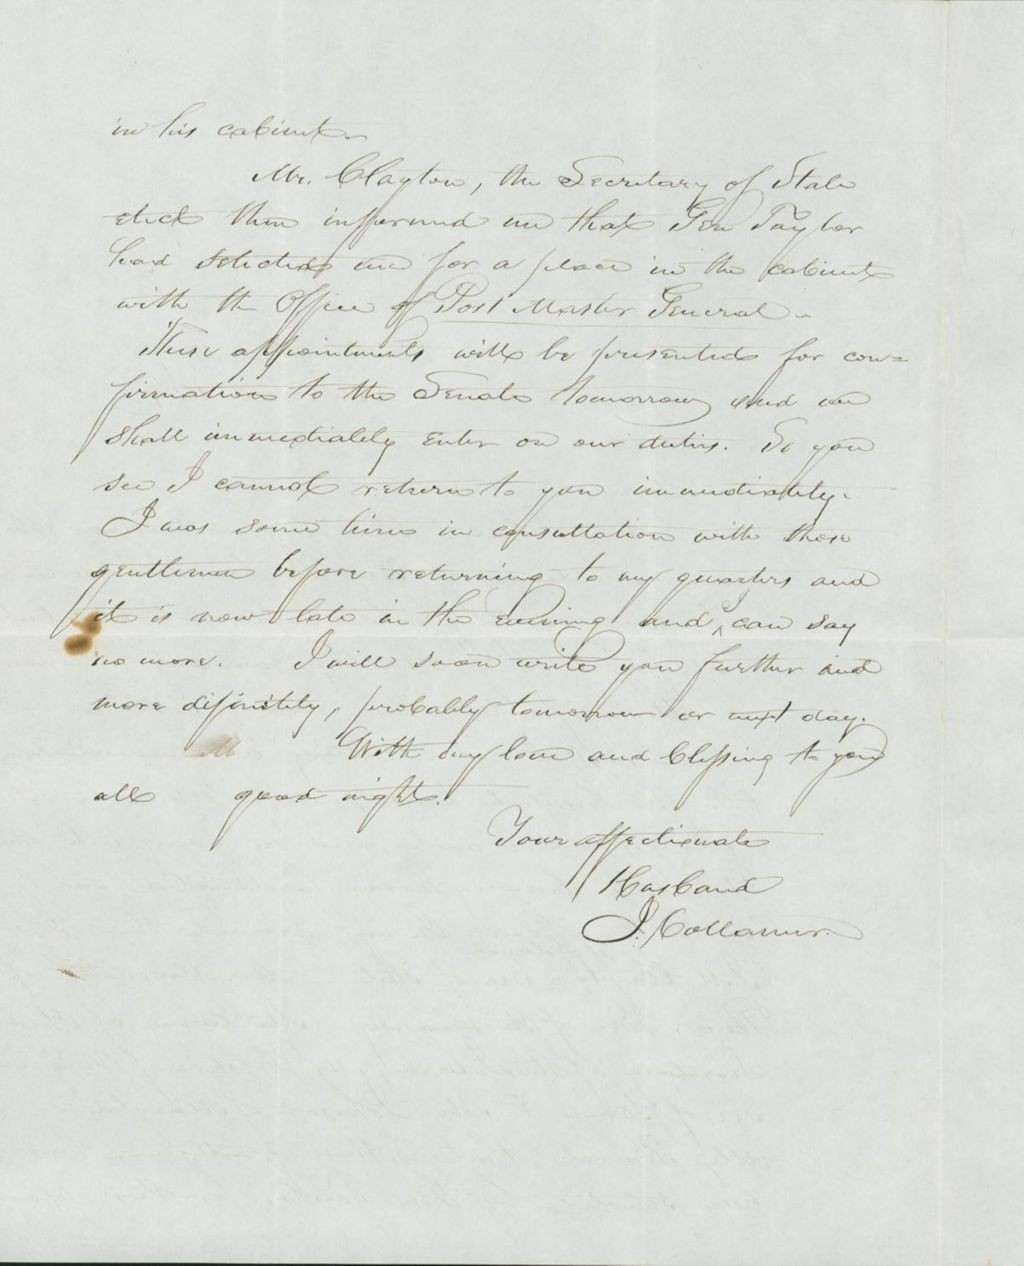 in his cabinet.
Mr. Clayton, the Secretary of State
elect then informed me that Gen Taylor
had selected me for a place in the cabinet
with the Office of Post Master General.
These appointments will be presented for con=
firmation to the Senate tomorrow and we
shall immediately enter on our duties. So you
see I cannot return to you immediately.
I was some time in consultation with those
gentlemen before returning to my quarters and
it is now late in the evening and I can say
no more. I will soon write you further and
more difinitely, probably tomorrow or next day.
With my love and blessing to you
all good night.
Your affectionate
Husband
J. Collamer.